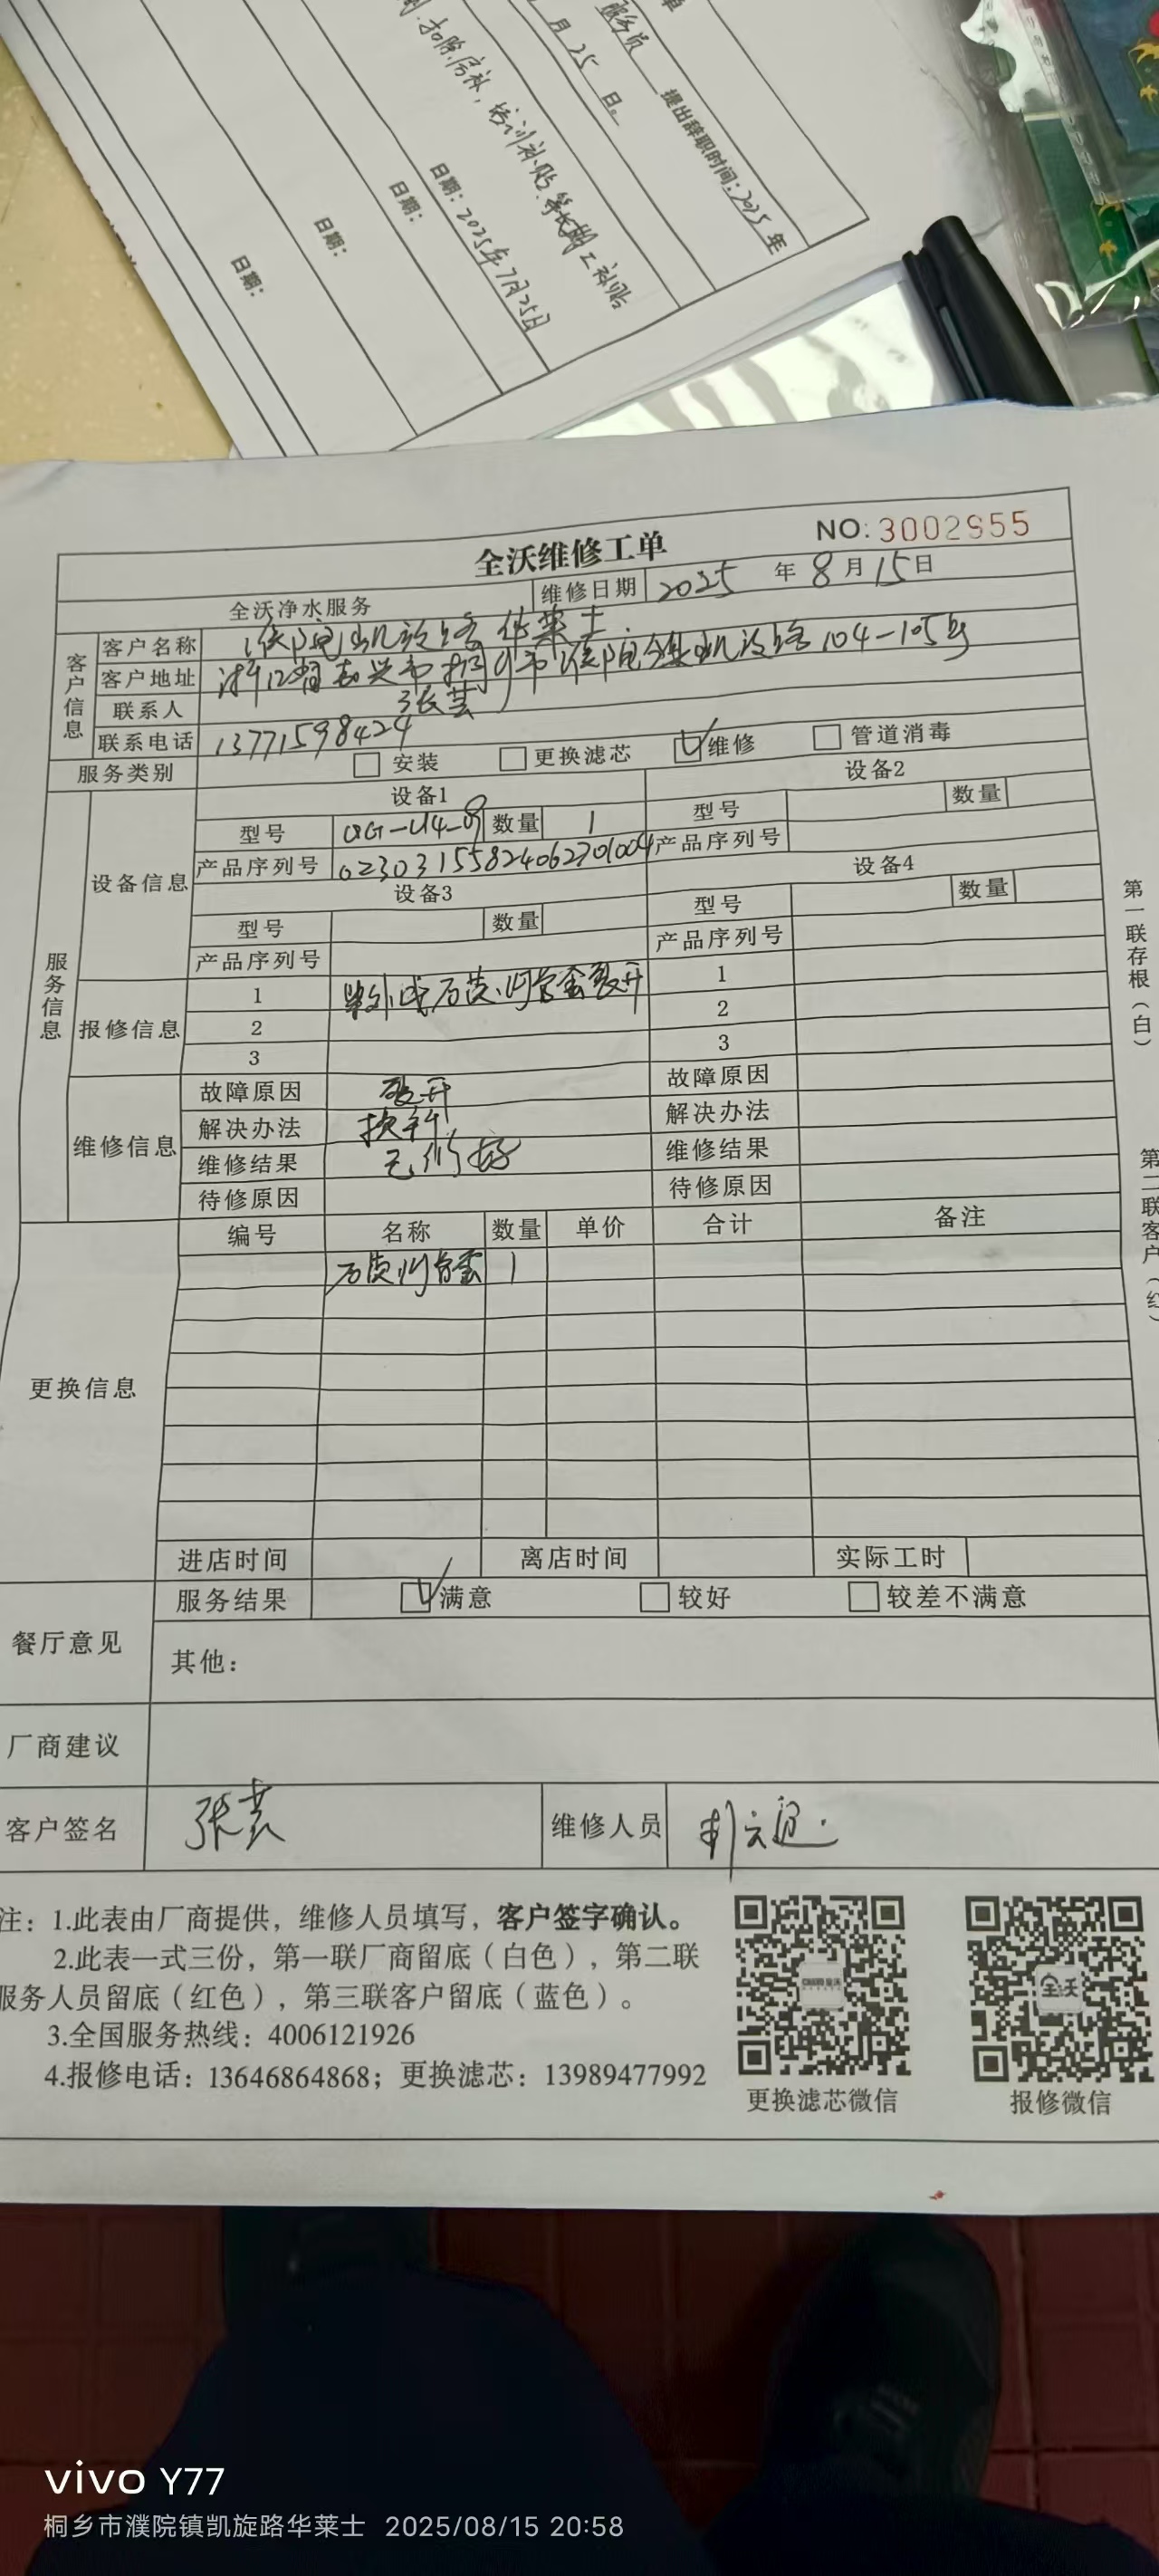 单
服务员 提出辞职时间：2025年
月25日。
扣除房补，培训补贴等长期工补贴
日期：2025年7月25日
日期：
日期：
日期：
全沃维修工单 NO: 3002955
全沃净水服务 维修日期 2025 年 8 月 15 日
客户信息
客户名称 濮院凯旋路华莱士
客户地址 浙江省嘉兴市桐乡市濮院镇凯旋路104-105号
联系人 张芸
联系电话 13771598424
服务类别 安装 更换滤芯 维修 管道消毒
服务信息
设备信息
设备1 设备2
型号 数量 1 型号 数量
产品序列号 02303155824062701004 产品序列号
设备3 设备4
型号 数量 型号 数量
产品序列号 产品序列号
报修信息
1 紫外线石英套管裂开 1
2 2
3 3
维修信息
故障原因 裂开 故障原因
解决办法 换新 解决办法
维修结果 已修好 维修结果
待修原因 待修原因
更换信息
编号 名称 数量 单价 合计 备注
石英 1
进店时间 离店时间 实际工时
餐厅意见
服务结果 满意 较好 较差不满意
其他：
厂商建议
客户签名 张芸 维修人员
第一联存根（白）
第二联客户（红）
注：1.此表由厂商提供，维修人员填写，客户签字确认。
2.此表一式三份，第一联厂商留底（白色），第二联
服务人员留底（红色），第三联客户留底（蓝色）。
3.全国服务热线：4006121926
4.报修电话：13646864868；更换滤芯：13989477992
全沃
更换滤芯微信 报修微信
vivo Y77
桐乡市濮院镇凯旋路华莱士 2025/08/15 20:58